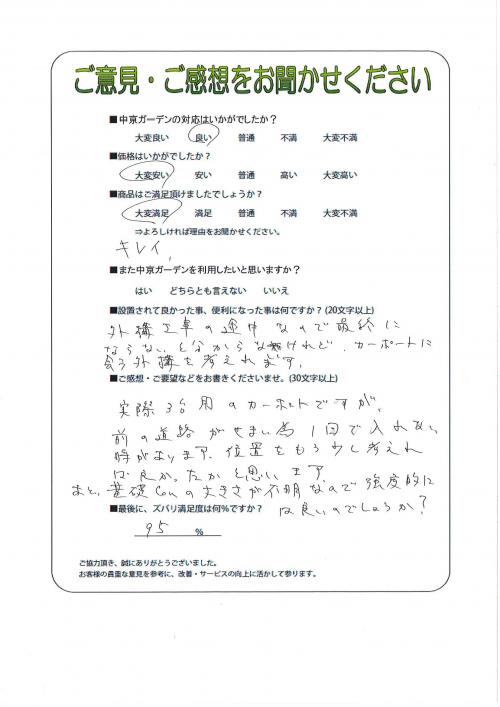 ご意見・ご感想をお聞かせください
■中京ガーデンの対応はいかがでしたか？
大変良い 良い 普通 不満 大変不満
■価格はいかがでしたか？
大変安い 安い 普通 高い 大変高い
■商品はご満足頂けましたでしょうか？
大変満足 満足 普通 不満 大変不満
⇒よろしければ理由をお聞かせください。
キレイ,
■また中京ガーデンを利用したいと思いますか？
はい どちらとも言えない いいえ
■設置されて良かった事、便利になった事は何ですか？(20文字以上)
外構工事の途中なので最終に
ならないと分からないけれど、カーポートに
会う外構を考えれます,
■ご感想・ご要望などをお書きくださいませ。(30文字以上)
実際3台用のカーポートですが、
前の道路がせまい為1回で入れない
時があります。位置をもう少し考えれ
ば良かったかと思います。
あと、基礎Conの大きさが不明なので強度的に
は良いのでしょうか？
■最後に、ズバリ満足度は何％ですか？
95 %
ご協力頂き、誠にありがとうございました。
お客様の貴重な意見を参考に、改善・サービスの向上に活かして参ります。